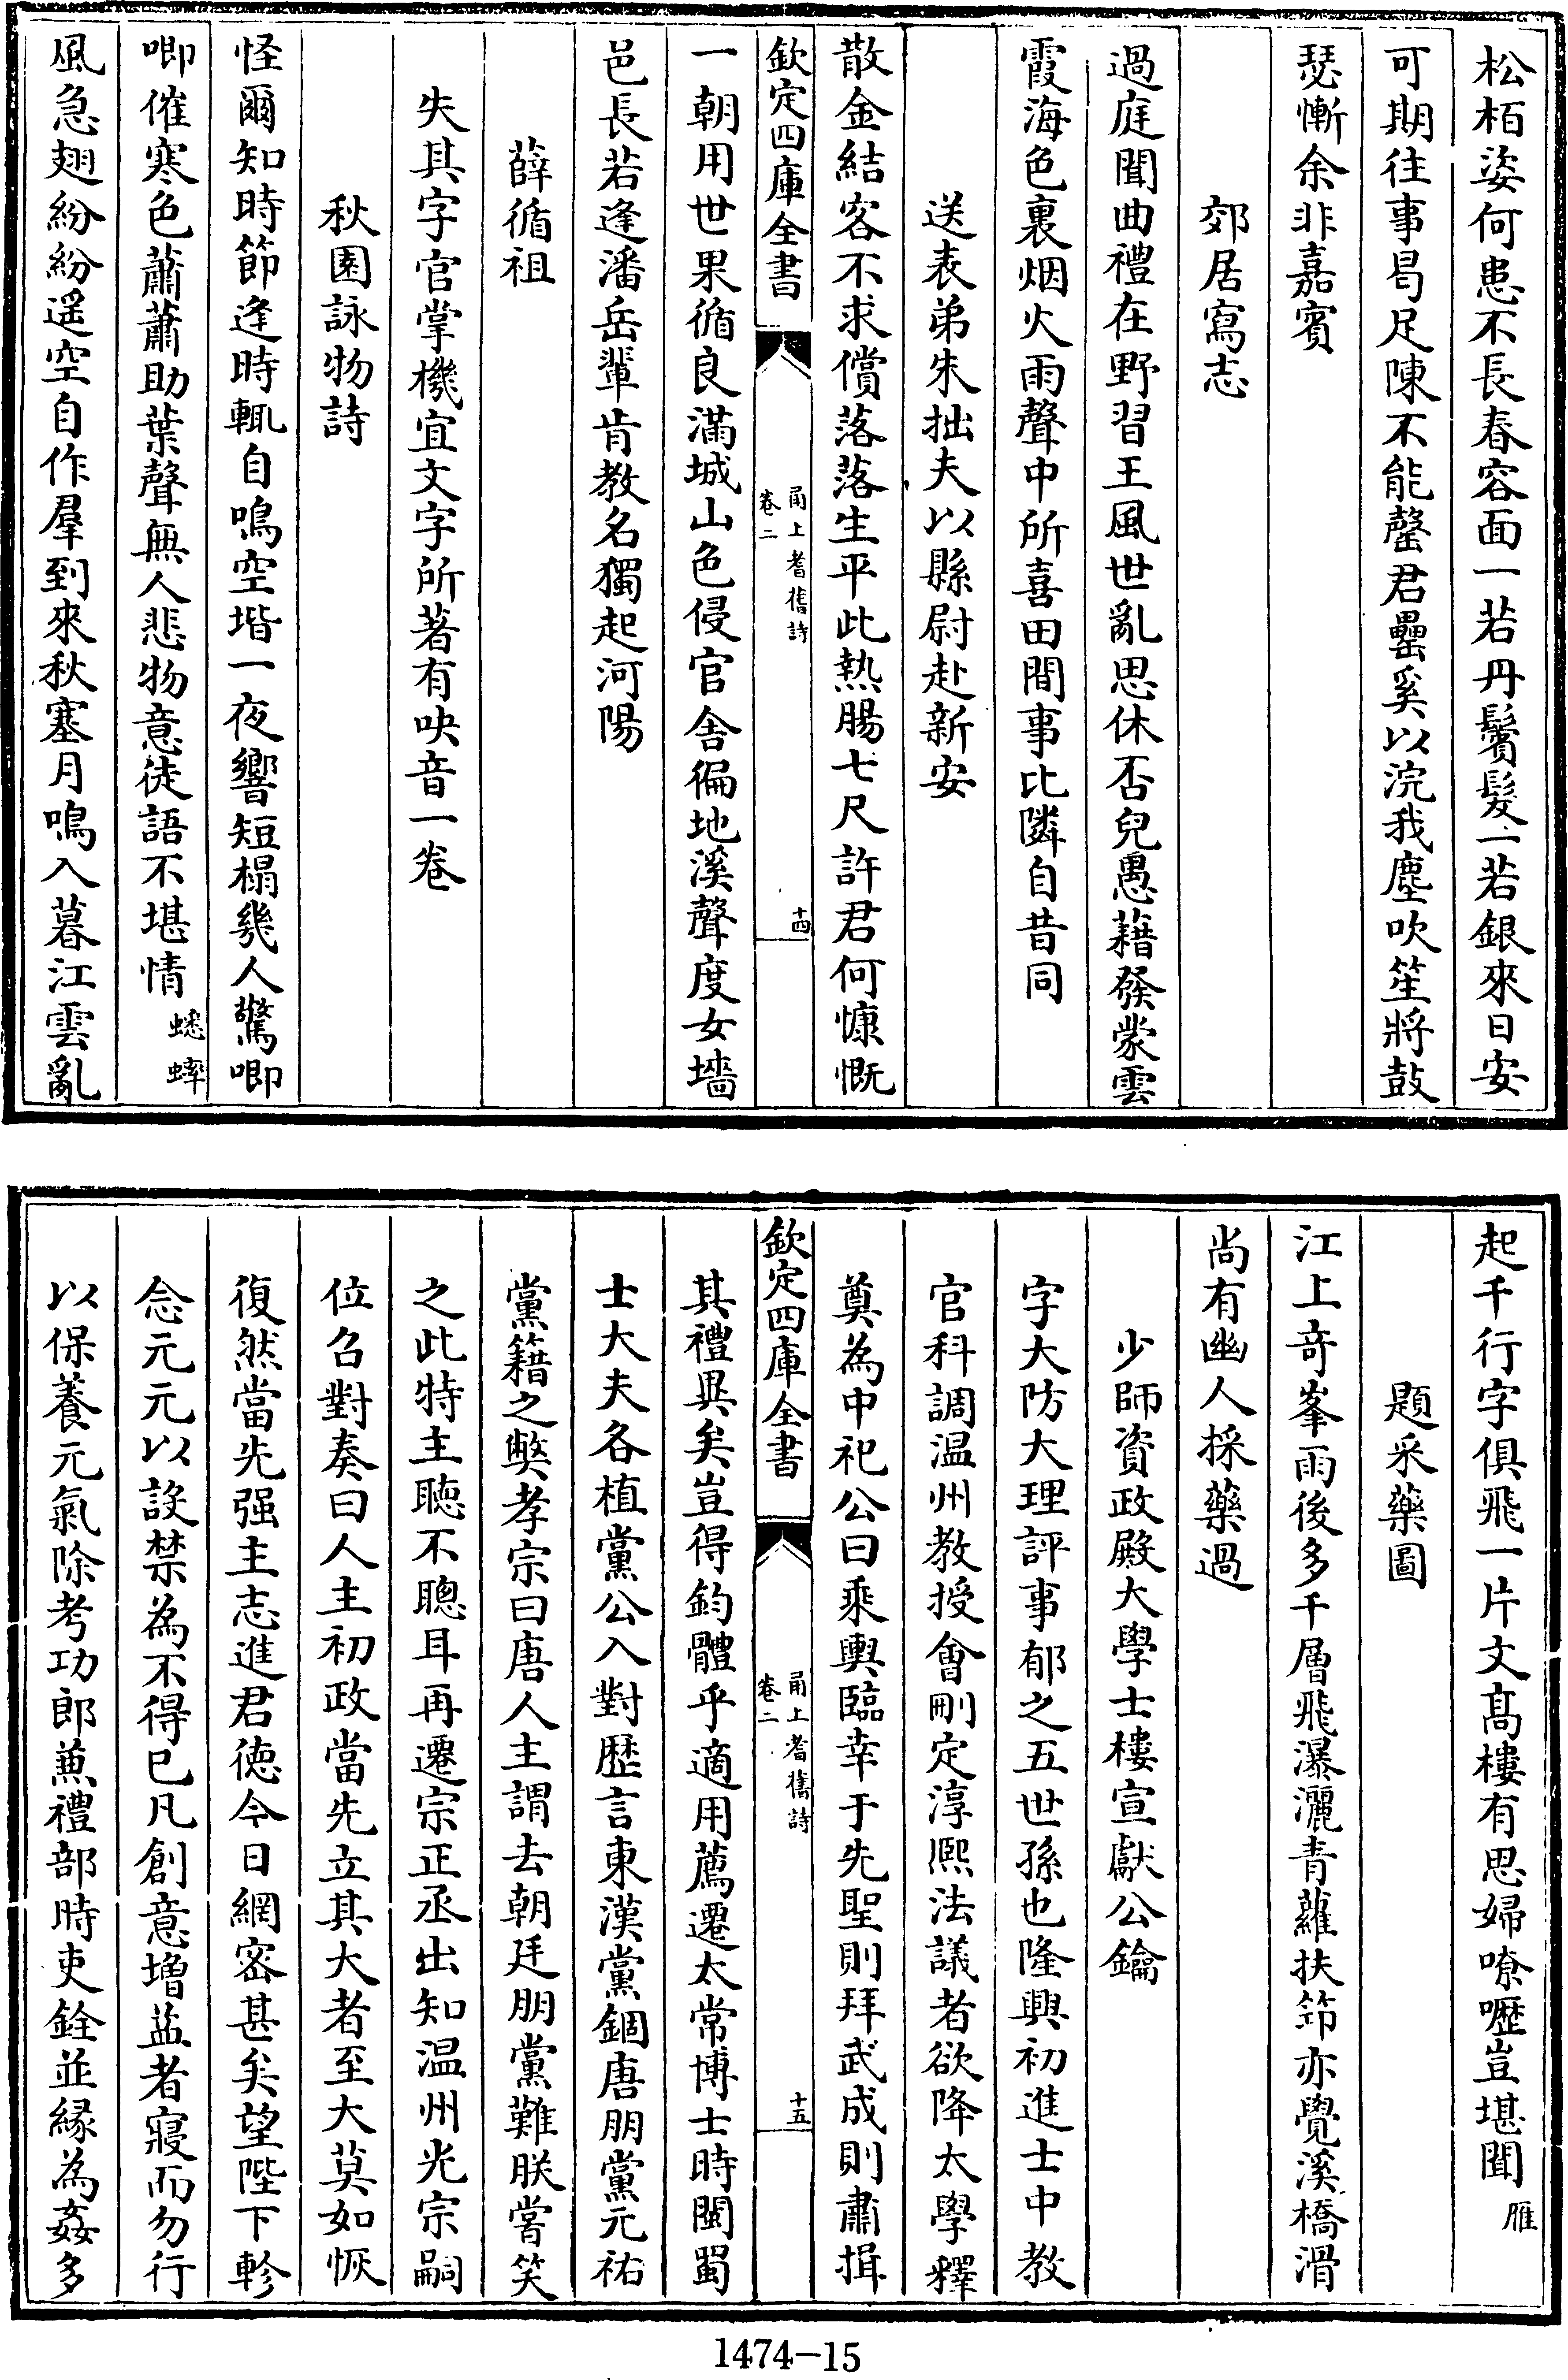 松栢姿何患不長春容面一若丹鬢髮一若銀來日安
可期往事曷足陳不能罄君罍奚以浣我塵吹笙將鼓
瑟慚余非嘉賓
郊居寫志
過庭聞曲禮在野習王風世亂思休否兒愚藉發蒙雲
霞海色裏烟火雨聲中所喜田間事比隣自昔同
送表弟朱拙夫以縣尉赴新安
散金結客不求償落落生平此熱腸七尺許君何慷慨
欽定四庫全書
甬上耆舊詩
卷二
十四
一朝用世果循良滿城山色侵官舍徧地溪聲度女墻
邑長若逢潘岳輩肯教名獨起河陽
薛循祖
失其字官掌機宜文字所著有吷音一卷
秋園詠物詩
怪爾知時節逢時輒自鳴空堦一夜響短榻幾人驚唧
唧催寒色蕭蕭助葉聲無人悲物意徒語不堪情蟋蟀
風急翅紛紛遥空自作羣到來秋塞月鳴入暮江雲亂
起千行字俱飛一片文髙樓有思婦嘹嚦豈堪聞雁
題采藥圖
江上竒峯雨後多千層飛瀑灑青蘿扶笻亦覺溪橋滑
尚有幽人採藥過
少師資政殿大學士樓宣獻公鑰
字大防大理評事郁之五世孫也隆興初進士中教
官科調温州教授會刪定淳熙法議者欲降太學釋
奠為中祀公曰乘輿臨幸于先聖則拜武成則肅揖
欽定四庫全書
甬上耆舊詩
卷二
十五
其禮異矣豈得鈞體乎適用薦遷太常博士時閩蜀
士大夫各植黨公入對歴言東漢黨錮唐朋黨元祐
黨籍之弊孝宗曰唐人主謂去朝廷朋黨難朕嘗笑
之此特主聽不聰耳再遷宗正丞出知温州光宗嗣
位召對奏曰人主初政當先立其大者至大莫如恢
復然當先强主志進君徳今日網宻甚矣望陛下軫
念元元以設禁為不得已凡創意増益者寢而勿行
以保養元氣除考功郎兼禮部時吏銓並緣為姦多
1474-15